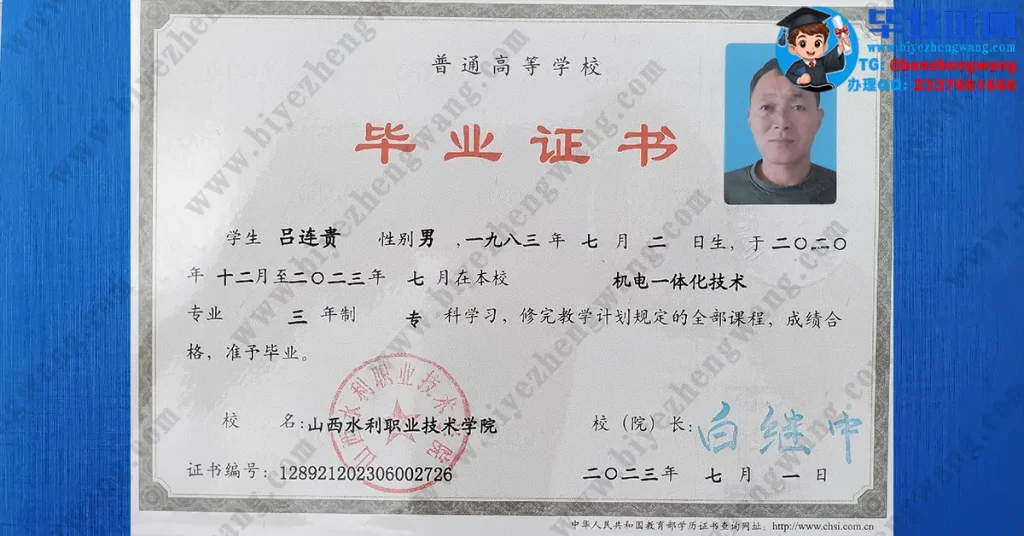 毕业证网
www.biyezhengwang.com
TG: @banzhengwang
办理QQ: 2337601666
普通高等学校
毕业证书
学生 吕连贵 性别 男 ,一九八三 年 七 月 二 日生, 于 二〇二〇
年 十二月至二〇二三年 七 月在本校 机电一体化技术
专业 三 年制 专 科学习, 修完教学计划规定的全部课程, 成绩合
格, 准予毕业。
山西水利职业技术学院
校 名:山西水利职业技术学院 校（院）长: 白继中
证书编号: 128921202306002726 二〇二三年 七 月 一 日
中华人民共和国教育部学历证书查询网址: http://www.chsi.com.cn
www.biyezhengwang.com